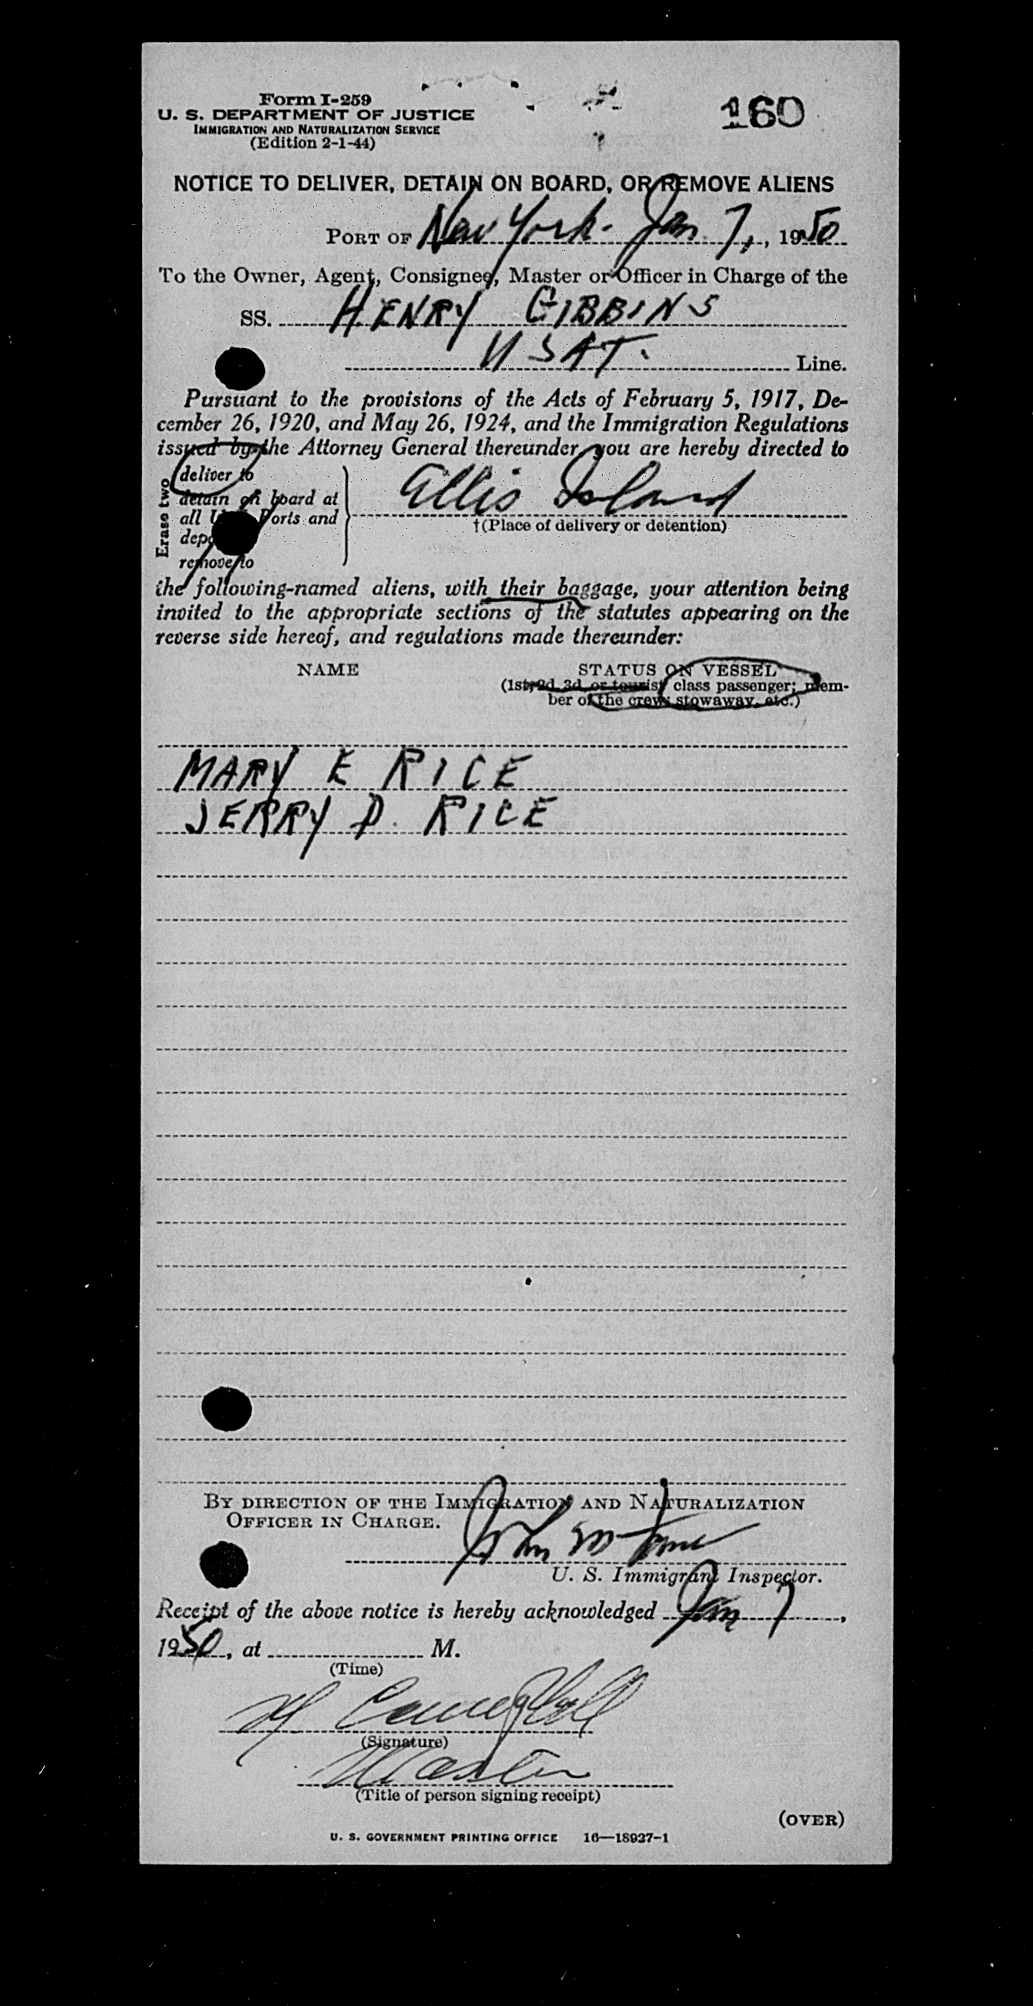 Form I-259
160
U. S. DEPARTMENT OF JUSTICE
IMMIGRATION AND NATURALIZATION SERVICE
(Edition 2-1-44)
NOTICE TO DELIVER, DETAIN ON BOARD, OR REMOVE ALIENS
PORT OF New York. Jan. 7, , 1950
To the Owner, Agent, Consignee, Master or Officer in Charge of the
SS. HENRY GIBBINS
USAT. Line.
Pursuant to the provisions of the Acts of February 5, 1917, De-
cember 26, 1920, and May 26, 1924, and the Immigration Regulations
issued by the Attorney General thereunder, you are hereby directed to
Erase two
deliver to
detain on board at
all Ports and
remove to
Ellis Island
†(Place of delivery or detention)
the following-named aliens, with their baggage, your attention being
invited to the appropriate sections of the statutes appearing on the
reverse side hereof, and regulations made thereunder:
NAME STATUS ON VESSEL
(1st, 2d, 3d, or tourist class passenger; mem-
ber of the crew; stowaway, etc.)
MARY E RICE
JERRY D. RICE
BY DIRECTION OF THE IMMIGRATION AND NATURALIZATION
OFFICER IN CHARGE.
John
U. S. Immigrant Inspector.
Receipt of the above notice is hereby acknowledged Jan 7,
1950, at M.
(Time)
Campbell
(Signature)
Master
(Title of person signing receipt)
(OVER)
U. S. GOVERNMENT PRINTING OFFICE 16—18927-1